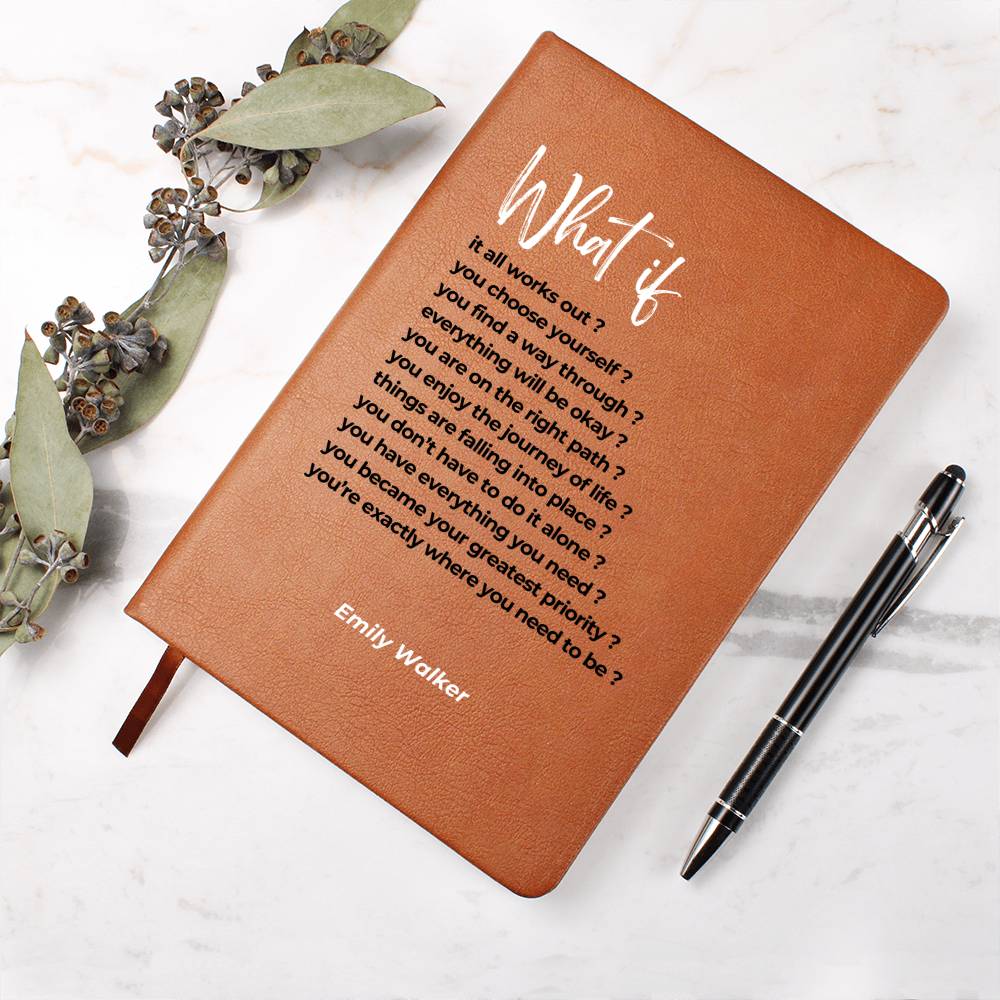 What if
it all works out ?
you choose yourself ?
you find a way through ?
everything will be okay ?
you are on the right path ?
you enjoy the journey of life ?
things are falling into place ?
you don't have to do it alone ?
you have everything you need ?
you became your greatest priority ?
you're exactly where you need to be ?
Emily Walker